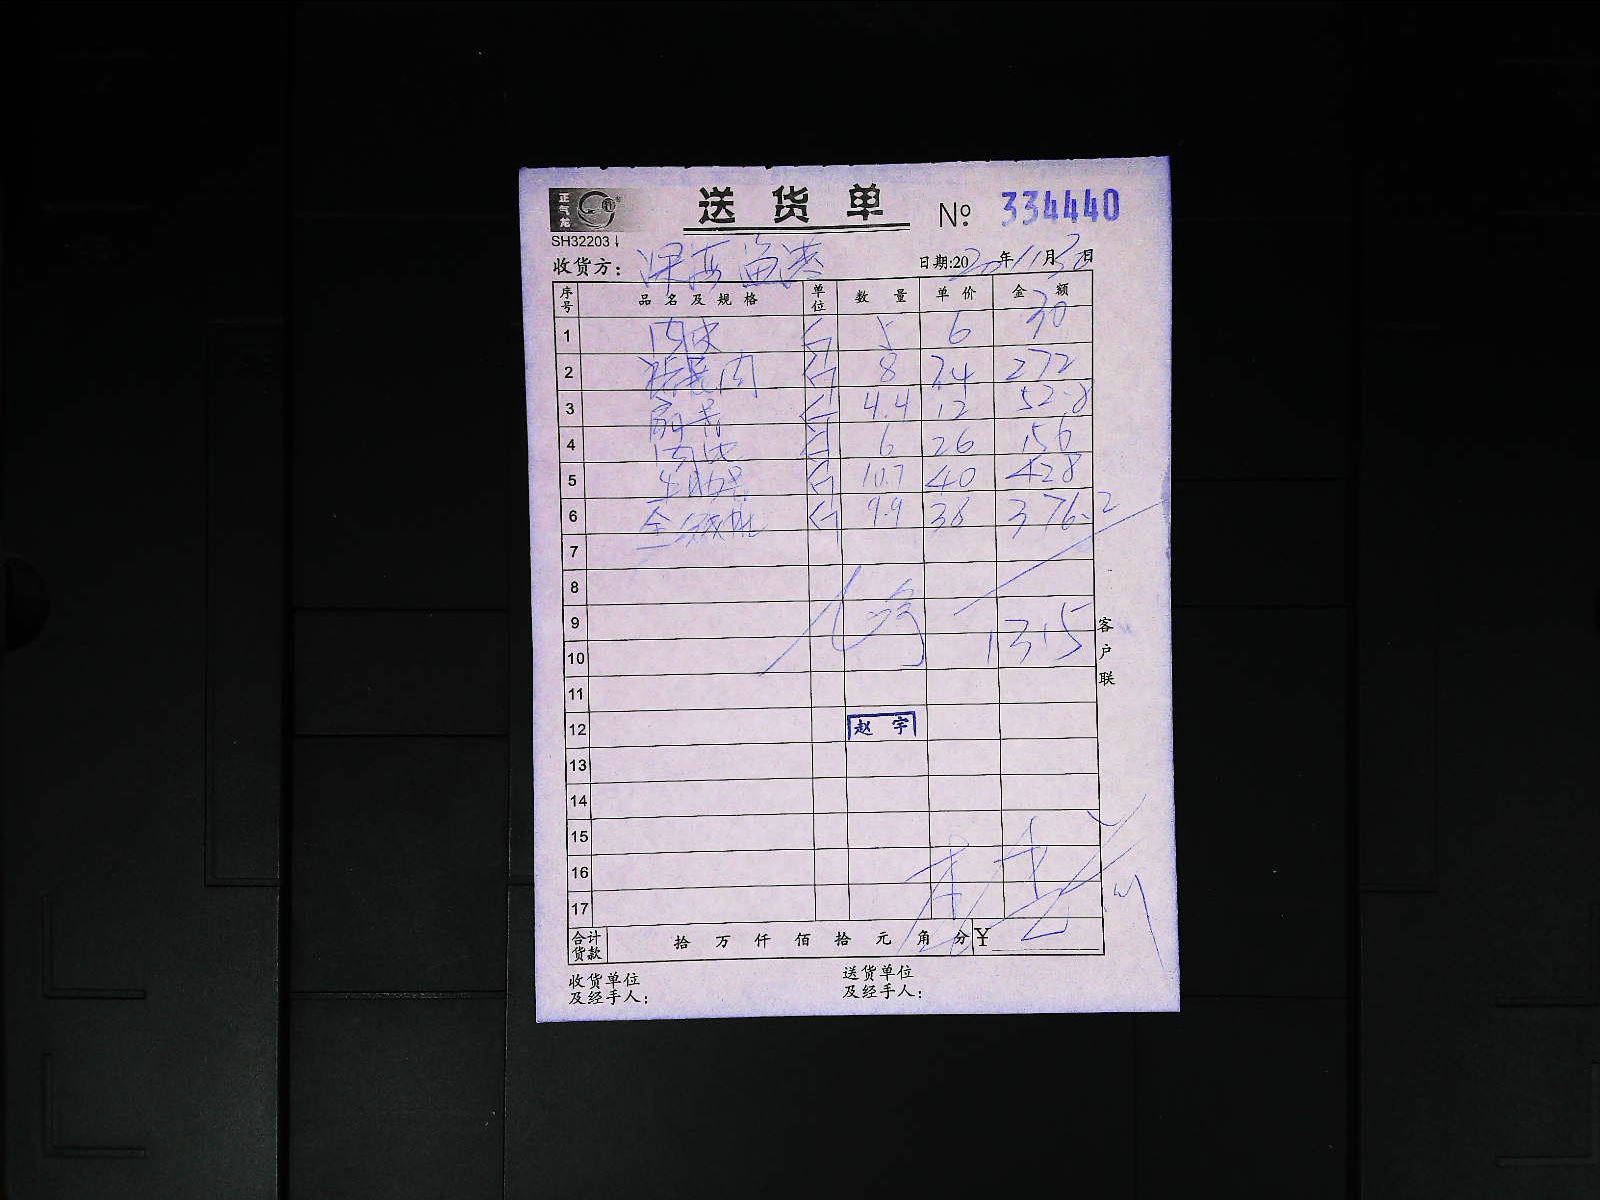 正气龙
送货单 № 334440
SH32203
收货方: 深海渔港 日期:2020年11月30日
序号 品名及规格 单位 数量 单价 金额
1 肉皮 斤 5 6 30
2 肉 斤 8 34 272
3 扇骨 斤 4.4 12 52.8
4 斤 6 26 156
5 斤 10.7 40 428
6 金钱肚 斤 9.9 38 376.2
7
8
9 1315
10
11
12 赵宇
13
14
15
16
17
合计货款 拾 万 仟 佰 拾 元 角 分 ¥
收货单位及经手人:
送货单位及经手人:
客户联